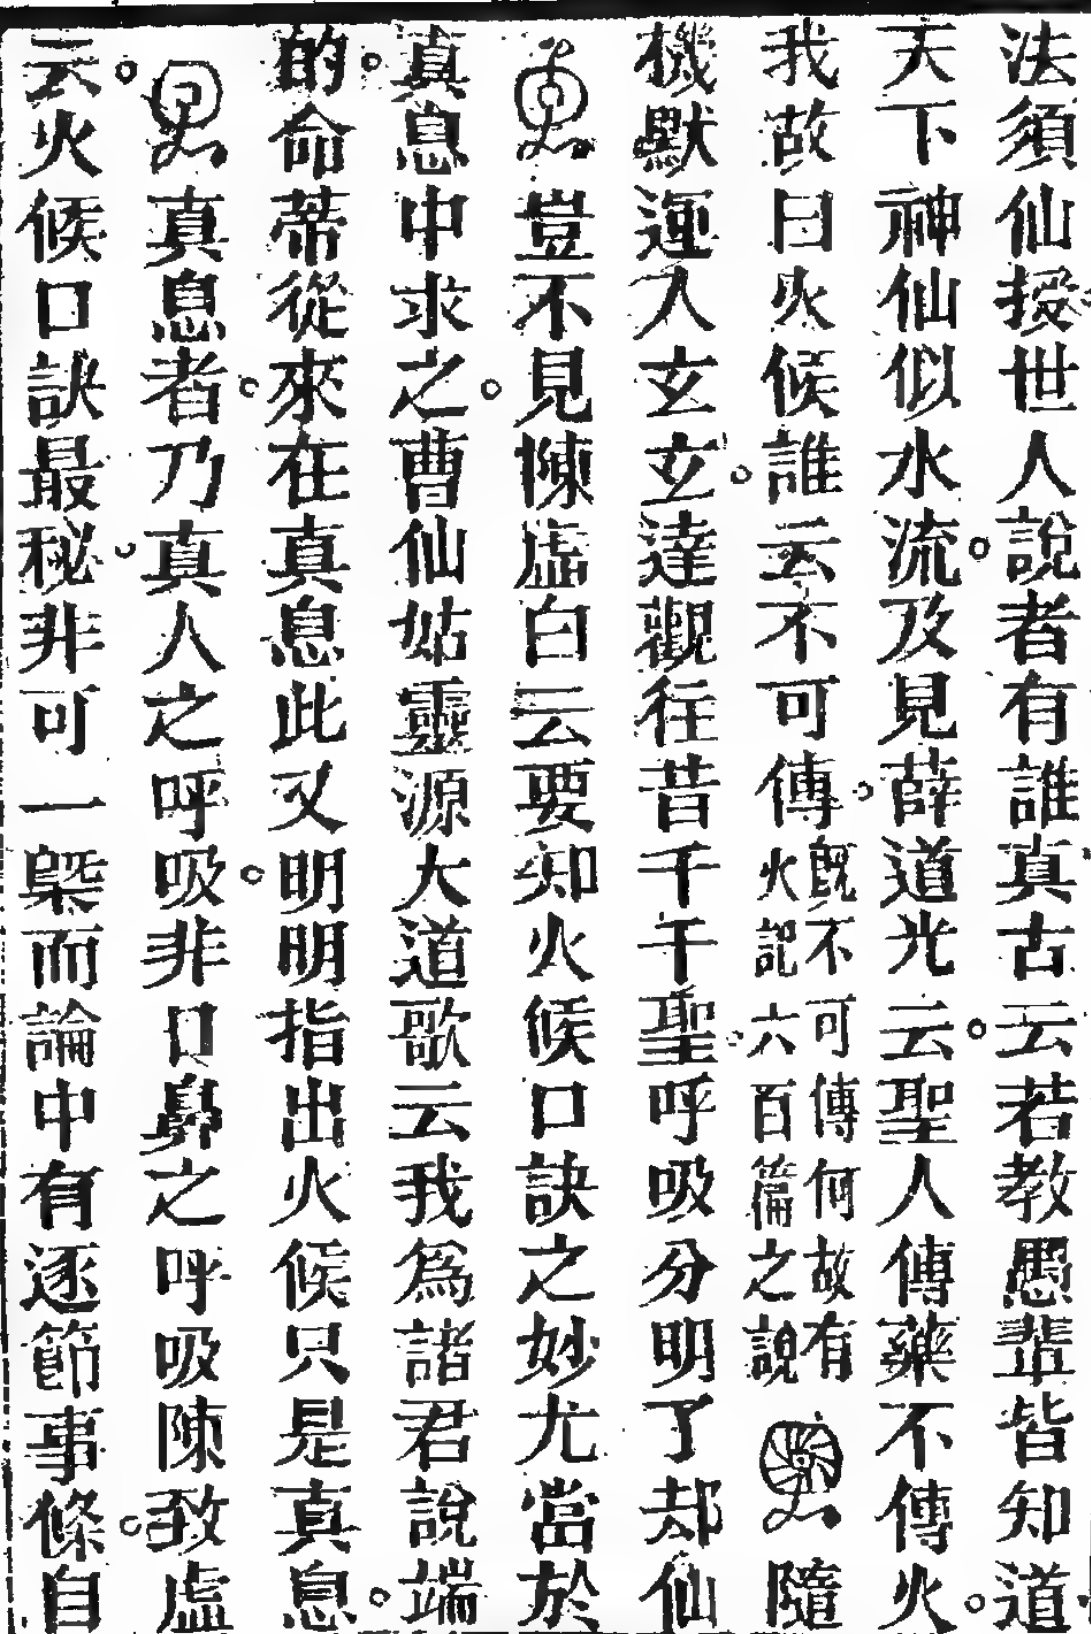 法須仙授世人說者有誰真古云若教愚輩皆知道
天下神仙似水流及見薛道光云聖人傳藥不傳火
我故曰火候誰云不可傳既不可傳何故有火記六百篇之說隨
機默運入玄玄達觀往昔千千聖呼吸分明了却仙
豈不見陳虛白云要知火候口訣之妙尤當於
真息中求之曹仙姑靈源大道歌云我為諸君說端
的命蒂從來在真息此又明明指出火候只是真息
真息者乃真人之呼吸非口鼻之呼吸陳致虛
云火候口訣最秘非可一槩而論中有逐節事條自